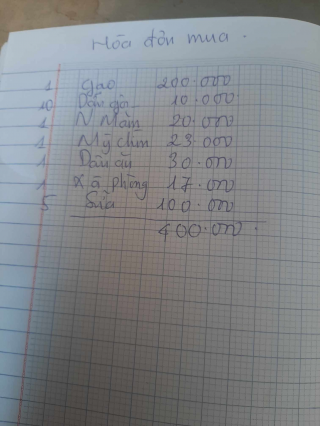 Hóa đơn mua.
1 Gạo 200.000
10 Dầu gội 10.000
1 N Mắm 20.000
1 Mỳ chín 23 000
1 Dầu ăn 30.000
1 Xà phòng 17.000
5 Sữa 100.000
400.000.